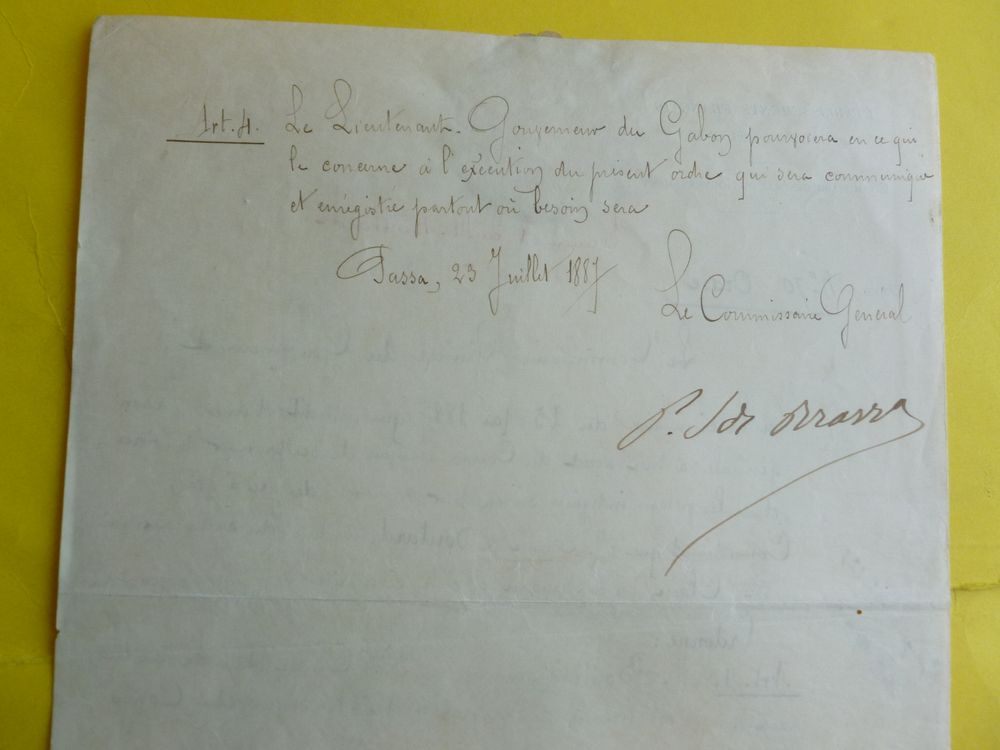 Art. 4. Le Lieutenant-Gouverneur du Gabon pourvoiera en ce qui
le concerne à l'exécution du présent ordre qui sera communiqué
et enrégistré partout où besoin sera
Passa, 23 Juillet 1887
Le Commissaire Général
P. S de Brazza